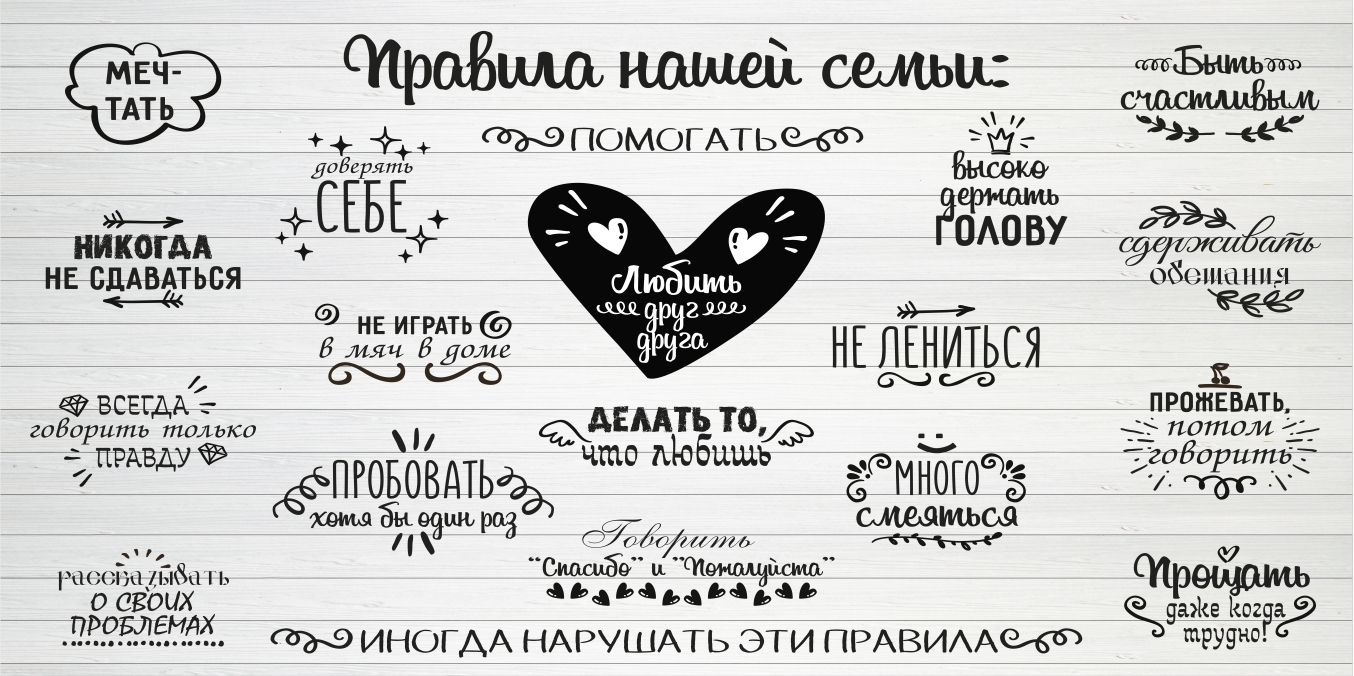 Правила нашей семьи:
МЕЧ-
ТАТЬ
Быть
счастливым
ПОМОГАТЬ
доверять
СЕБЕ
высоко
держать
ГОЛОВУ
НИКОГДА
НЕ СДАВАТЬСЯ
сдерживать
обещания
Любить
друг
друга
НЕ ИГРАТЬ
в мяч в доме
НЕ ЛЕНИТЬСЯ
ВСЕГДА
говорить только
ПРАВДУ
ДЕЛАТЬ ТО,
что любишь
ПРОЖЕВАТЬ,
потом
говорить
ПРОБОВАТЬ
хотя бы один раз
МНОГО
смеяться
Говорить
“Спасибо” и ”Пожалуйста”
рассказывать
О СВОИХ
ПРОБЛЕМАХ
Прощать
даже когда
трудно!
ИНОГДА НАРУШАТЬ ЭТИ ПРАВИЛА